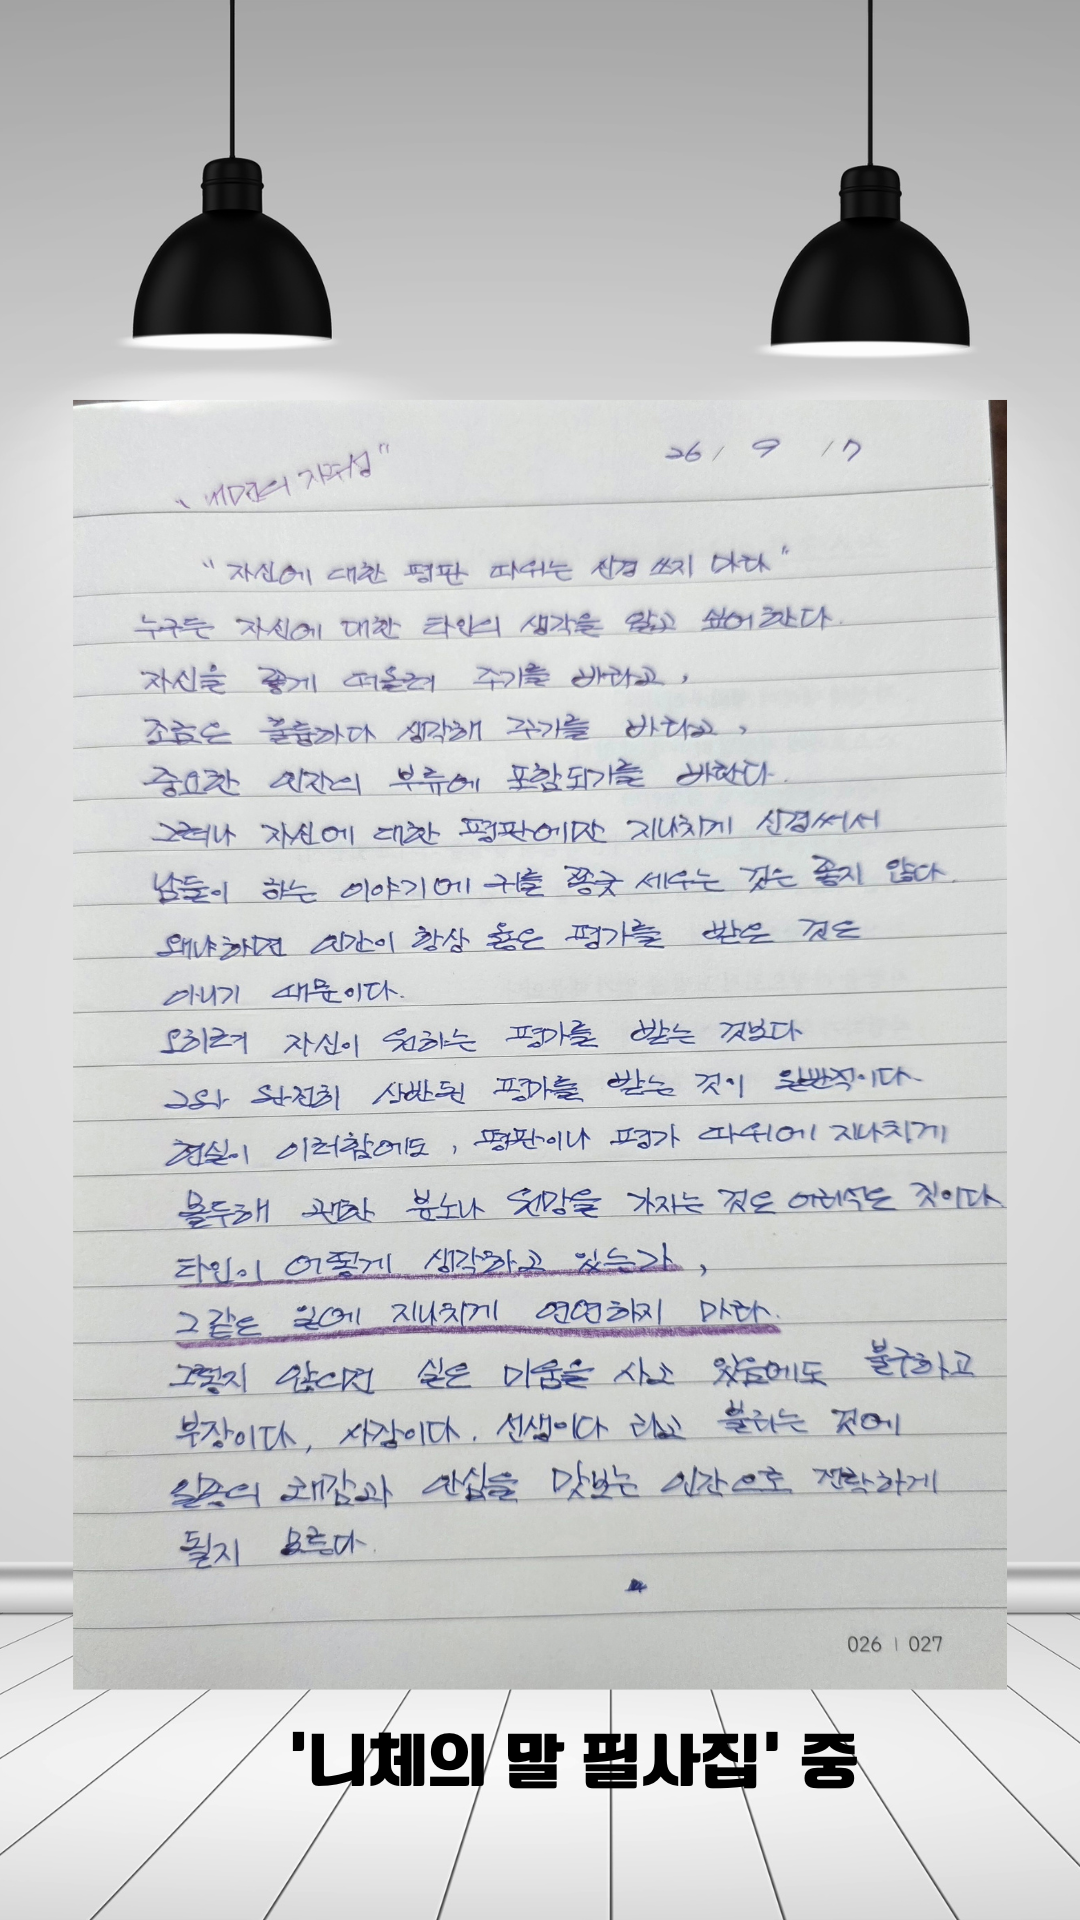 "내면의 자주성"
26 / 9 / 7
"자신에 대한 평판 따위는 신경 쓰지 마라"
누구든 자신에 대한 타인의 생각을 알고 싶어한다.
자신을 좋게 떠올려 주기를 바라고,
조금은 훌륭하다 생각해 주기를 바라고,
중요한 인간의 부류에 포함되기를 바란다.
그러나 자신에 대한 평판에만 지나치게 신경써서
남들이 하는 이야기에 귀를 쫑긋 세우는 것은 좋지 않다.
왜냐하면 인간이 항상 옳은 평가를 받은 것은
아니기 때문이다.
오히려 자신이 원하는 평가를 받는 것보다
그와 완전히 상반된 평가를 받는 것이 일반적이다.
현실이 이러함에도, 평판이나 평가 따위에 지나치게
몰두해 괜한 분노나 원망을 가지는 것은 어리석은 짓이다
타인이 어떻게 생각하고 있는가,
그같은 일에 지나치게 연연하지 마라.
그렇지 않으면 실은 미움을 사고 있음에도 불구하고
부장이다, 사장이다. 선생이다 라고 불리는 것에
일종의 쾌감과 안심을 맛보는 인간으로 전락하게
될지 모른다.
026 | 027
'니체의 말 필사집' 중